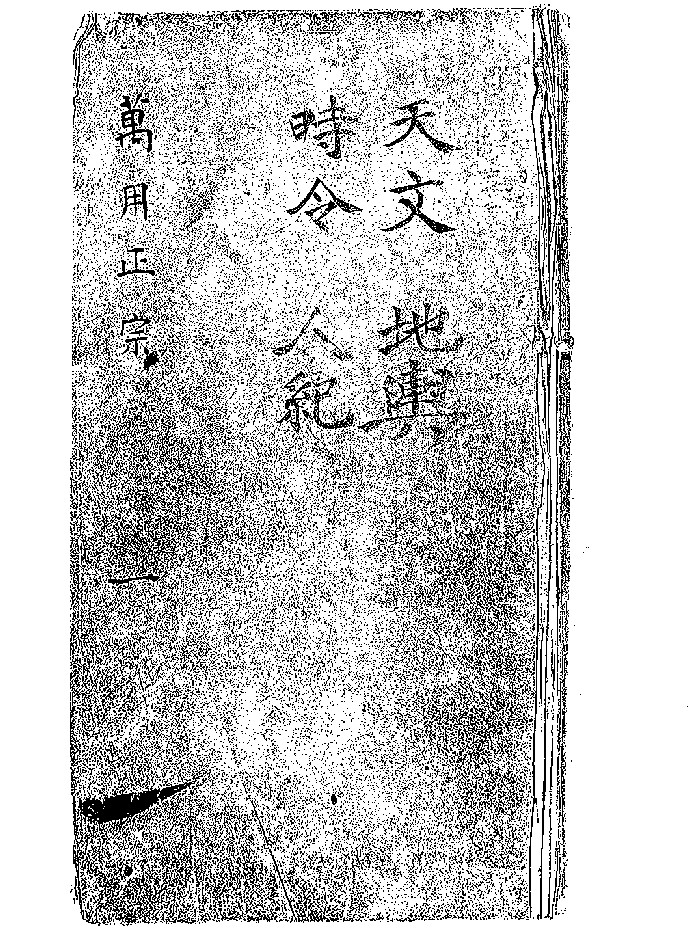 天文 地輿
時令 人紀
萬用正宗 一